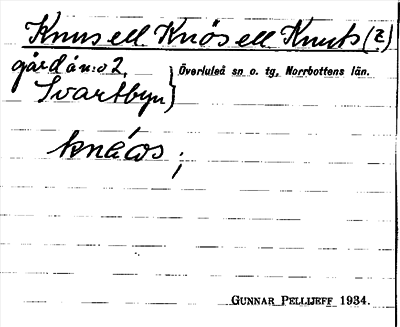 Knus ell. Knös ell. Knuts (?)
gård å n:o 2,
Svartbyn } Överluleå sn o. tg, Norrbottens län.
knéos ;
GUNNAR PELLIJEFF 1934.